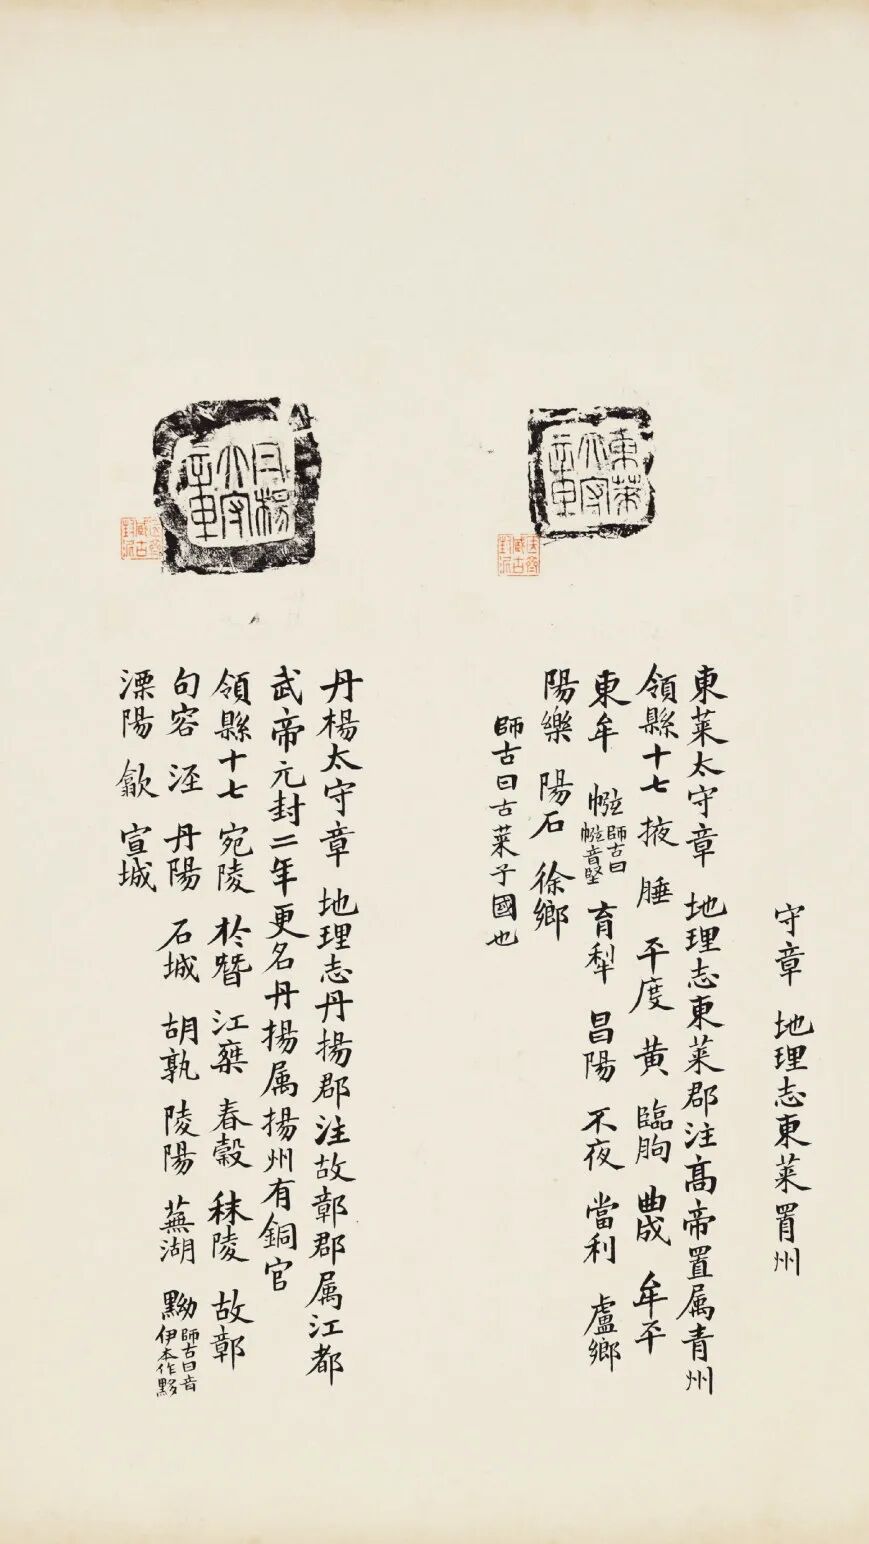 守章 地理志東萊 州
東萊
大守
章
東萊太守章 地理志東萊郡注高帝置属青州
領縣十七 掖 腄 平度 黄 臨朐 曲成 牟平
東牟 㡉 師古曰㡉音堅 育犁 昌陽 不夜 當利 盧鄉
陽樂 陽石 徐鄉
師古曰古萊子國也
丹楊
大守
章
丹楊太守章 地理志丹揚郡注故鄣郡属江都
武帝元封二年更名丹揚属揚州有銅官
領縣十七 宛陵 於朁 江乗 春穀 秣陵 故鄣
句容 涇 丹陽 石城 胡孰 陵陽 蕪湖 黝 師古曰音伊本作黟
溧陽 歙 宣城